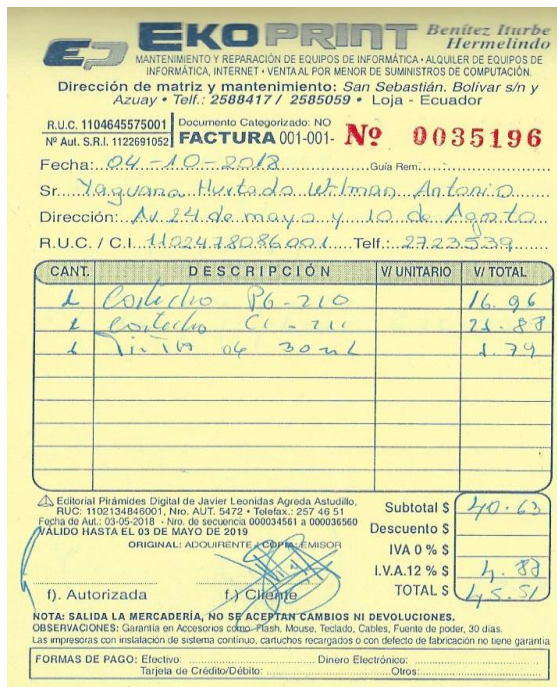 EKO PRINT Benítez Iturbe
Hermelindo
MANTENIMIENTO Y REPARACIÓN DE EQUIPOS DE INFORMÁTICA • ALQUILER DE EQUIPOS DE
INFORMÁTICA, INTERNET • VENTA AL POR MENOR DE SUMINISTROS DE COMPUTACIÓN.
Dirección de matriz y mantenimiento: San Sebastián. Bolívar s/n y
Azuay • Telf.: 2588417 / 2585059 • Loja - Ecuador
R.U.C. 1104645575001 Documento Categorizado: NO
Nº Aut. S.R.I. 1122691052 FACTURA 001-001- Nº 0035196
Fecha: 04-10-2018 Guía Rem:
Sr. Yaguana Hurtado Wilman Antonio
Dirección: Av 24 de mayo y 10 de Agosto
R.U.C. / C.I. 1102478086001 Telf.: 2723539
CANT. DESCRIPCIÓN V/ UNITARIO V/ TOTAL
1 PG-210 16.96
1 CL-211 21.88
1 Tinta de 30 ml 1.79
Editorial Pirámides Digital de Javier Leonidas Agreda Astudillo,
RUC: 1102134846001, Nro. AUT. 5472 • Telefax.: 257 46 51
Fecha de Aut.: 03-05-2018 - Nro. de secuencia 000034561 a 000036560
VÁLIDO HASTA EL 03 DE MAYO DE 2019
ORIGINAL: ADQUIRENTE / COPIA: EMISOR
Subtotal $ 40.63
Descuento $
IVA 0 % $
I.V.A.12 % $ 4.88
TOTAL $ 45.51
f). Autorizada f.) Cliente
NOTA: SALIDA LA MERCADERÍA, NO SE ACEPTAN CAMBIOS NI DEVOLUCIONES.
OBSERVACIONES: Garantía en Accesorios como: Flash, Mouse, Teclado, Cables, Fuente de poder, 30 dias.
Las impresoras con instalación de sistema continuo, cartuchos recargados o con defecto de fabricación no tiene garantia
FORMAS DE PAGO: Efectivo: Dinero Electrónico:
Tarjeta de Crédito/Débito: Otros: